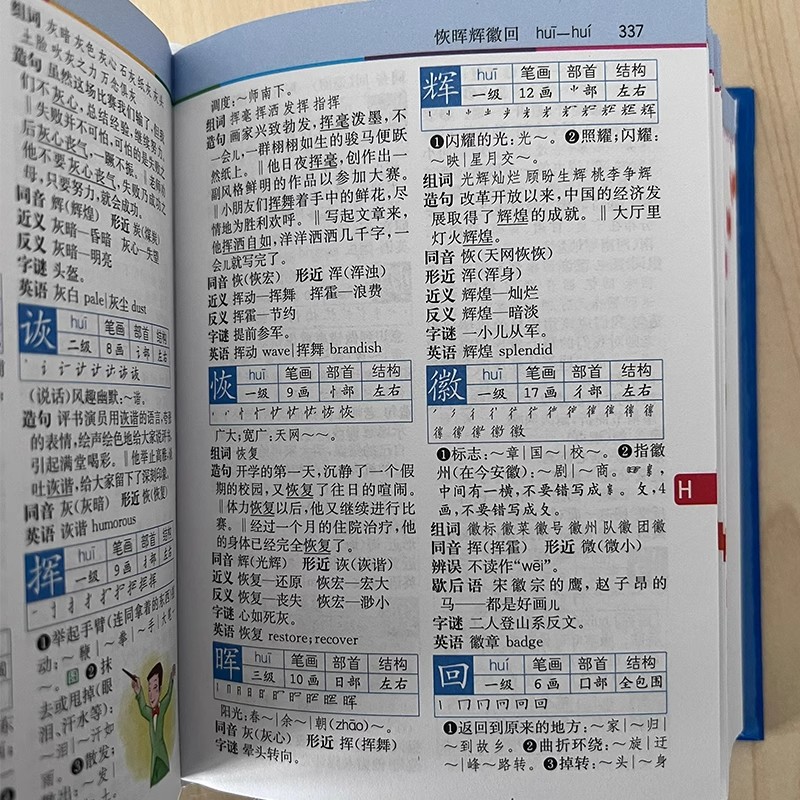 恢晖辉徽回 huī—huí 337
组词 灰暗 灰色 灰心 石灰 纸灰 灰尘
土脸 吹灰之力 万念俱灰
造句 虽然这场比赛我们输了,但我
们不灰心,总结经验,继续努力。
‖失败并不可怕,可怕的是失败之
后灰心丧气,一蹶不振。‖老师叫
他不要灰心丧气,失败乃成功之
母,只要努力,就会成功。
同音 辉(辉煌) 形近 炭(煤炭)
近义 灰暗—昏暗 灰心—失望
反义 灰暗—明亮
字谜 头盔。
英语 灰白 pale|灰尘 dust
诙 huī 笔画 部首 结构
二级 8画 讠部 左右
(说话)风趣幽默:~谐。
造句 评书演员用诙谐的语言,夸张
的表情,绘声绘色地给大家说评书,
引起满堂喝彩。‖他举止高雅,谈
吐诙谐,给大家留下了深刻印象。
同音 灰(灰暗) 形近 恢(恢复)
英语 诙谐 humorous
挥 huī 笔画 部首 结构
一级 9画 扌部 左右
❶举起手臂(连同拿着的东西)摇
动:~鞭|~拳|~手|大笔一
~。 ❷抹
去或甩掉(眼
泪、汗水等):
~泪|~汗如
雨。 ❸散发;
调度:~师南下。
组词 挥毫 挥洒 发挥 指挥
造句 画家兴致勃发,挥毫泼墨,不
一会儿,一群栩栩如生的骏马便跃
然纸上。‖他日夜挥毫,创作出一
副风格鲜明的作品以参加大赛。
‖小朋友们挥舞着手中的鲜花,尽
情地为胜利欢呼。‖写起文章来,
他挥洒自如,洋洋洒洒几千字,一
会儿就写完了。
同音 恢(恢宏) 形近 浑(浑浊)
近义 挥动—挥舞 挥霍—浪费
反义 挥霍—节约
字谜 提前参军。
英语 挥动 wave|挥舞 brandish
恢 huī 笔画 部首 结构
一级 9画 忄部 左右
广大;宽广:天网~~。
组词 恢复
造句 开学的第一天,沉静了一个假
期的校园,又恢复了往日的喧闹。
‖体力恢复以后,他又继续进行比
赛。‖经过一个月的住院治疗,他
的身体已经完全恢复了。
同音 辉(光辉) 形近 诙(诙谐)
近义 恢复—还原 恢宏—宏大
反义 恢复—丧失 恢宏—渺小
字谜 心如死灰。
英语 恢复 restore;recover
晖 huī 笔画 部首 结构
三级 10画 日部 左右
阳光:春~|余~|朝(zhāo)~。
同音 灰(灰心) 形近 挥(挥舞)
字谜 晕头转向。
辉 huī 笔画 部首 结构
一级 12画 ⺌部 左右
❶闪耀的光:光~。❷照耀;闪耀:
~映|星月交~。
组词 光辉灿烂 顾盼生辉 桃李争辉
造句 改革开放以来,中国的经济发
展取得了辉煌的成就。‖大厅里
灯火辉煌。
同音 恢(天网恢恢)
形近 浑(浑身)
近义 辉煌—灿烂
反义 辉煌—暗淡
字谜 一小儿从军。
英语 辉煌 splendid
徽 huī 笔画 部首 结构
一级 17画 彳部 左右
❶标志:~章|国~|校~。❷指徽
州(在今安徽):~剧|~商。
中间有一横,不要错写成。攵,4
画,不要错写成夂。
组词 徽标 徽菜 徽号 徽州 队徽 团徽
同音 挥(挥霍) 形近 微(微小)
辨误 不读作“wēi”。
歇后语 宋徽宗的鹰,赵子昂的
马——都是好画儿
字谜 二人登山系反文。
英语 徽章 badge
H
回 huí 笔画 部首 结构
一级 6画 囗部 全包围
❶返回到原来的地方:~家|~归|
~到故乡。❷曲折环绕:~旋|迂
~|峰~路转。❸掉转:~头|~身